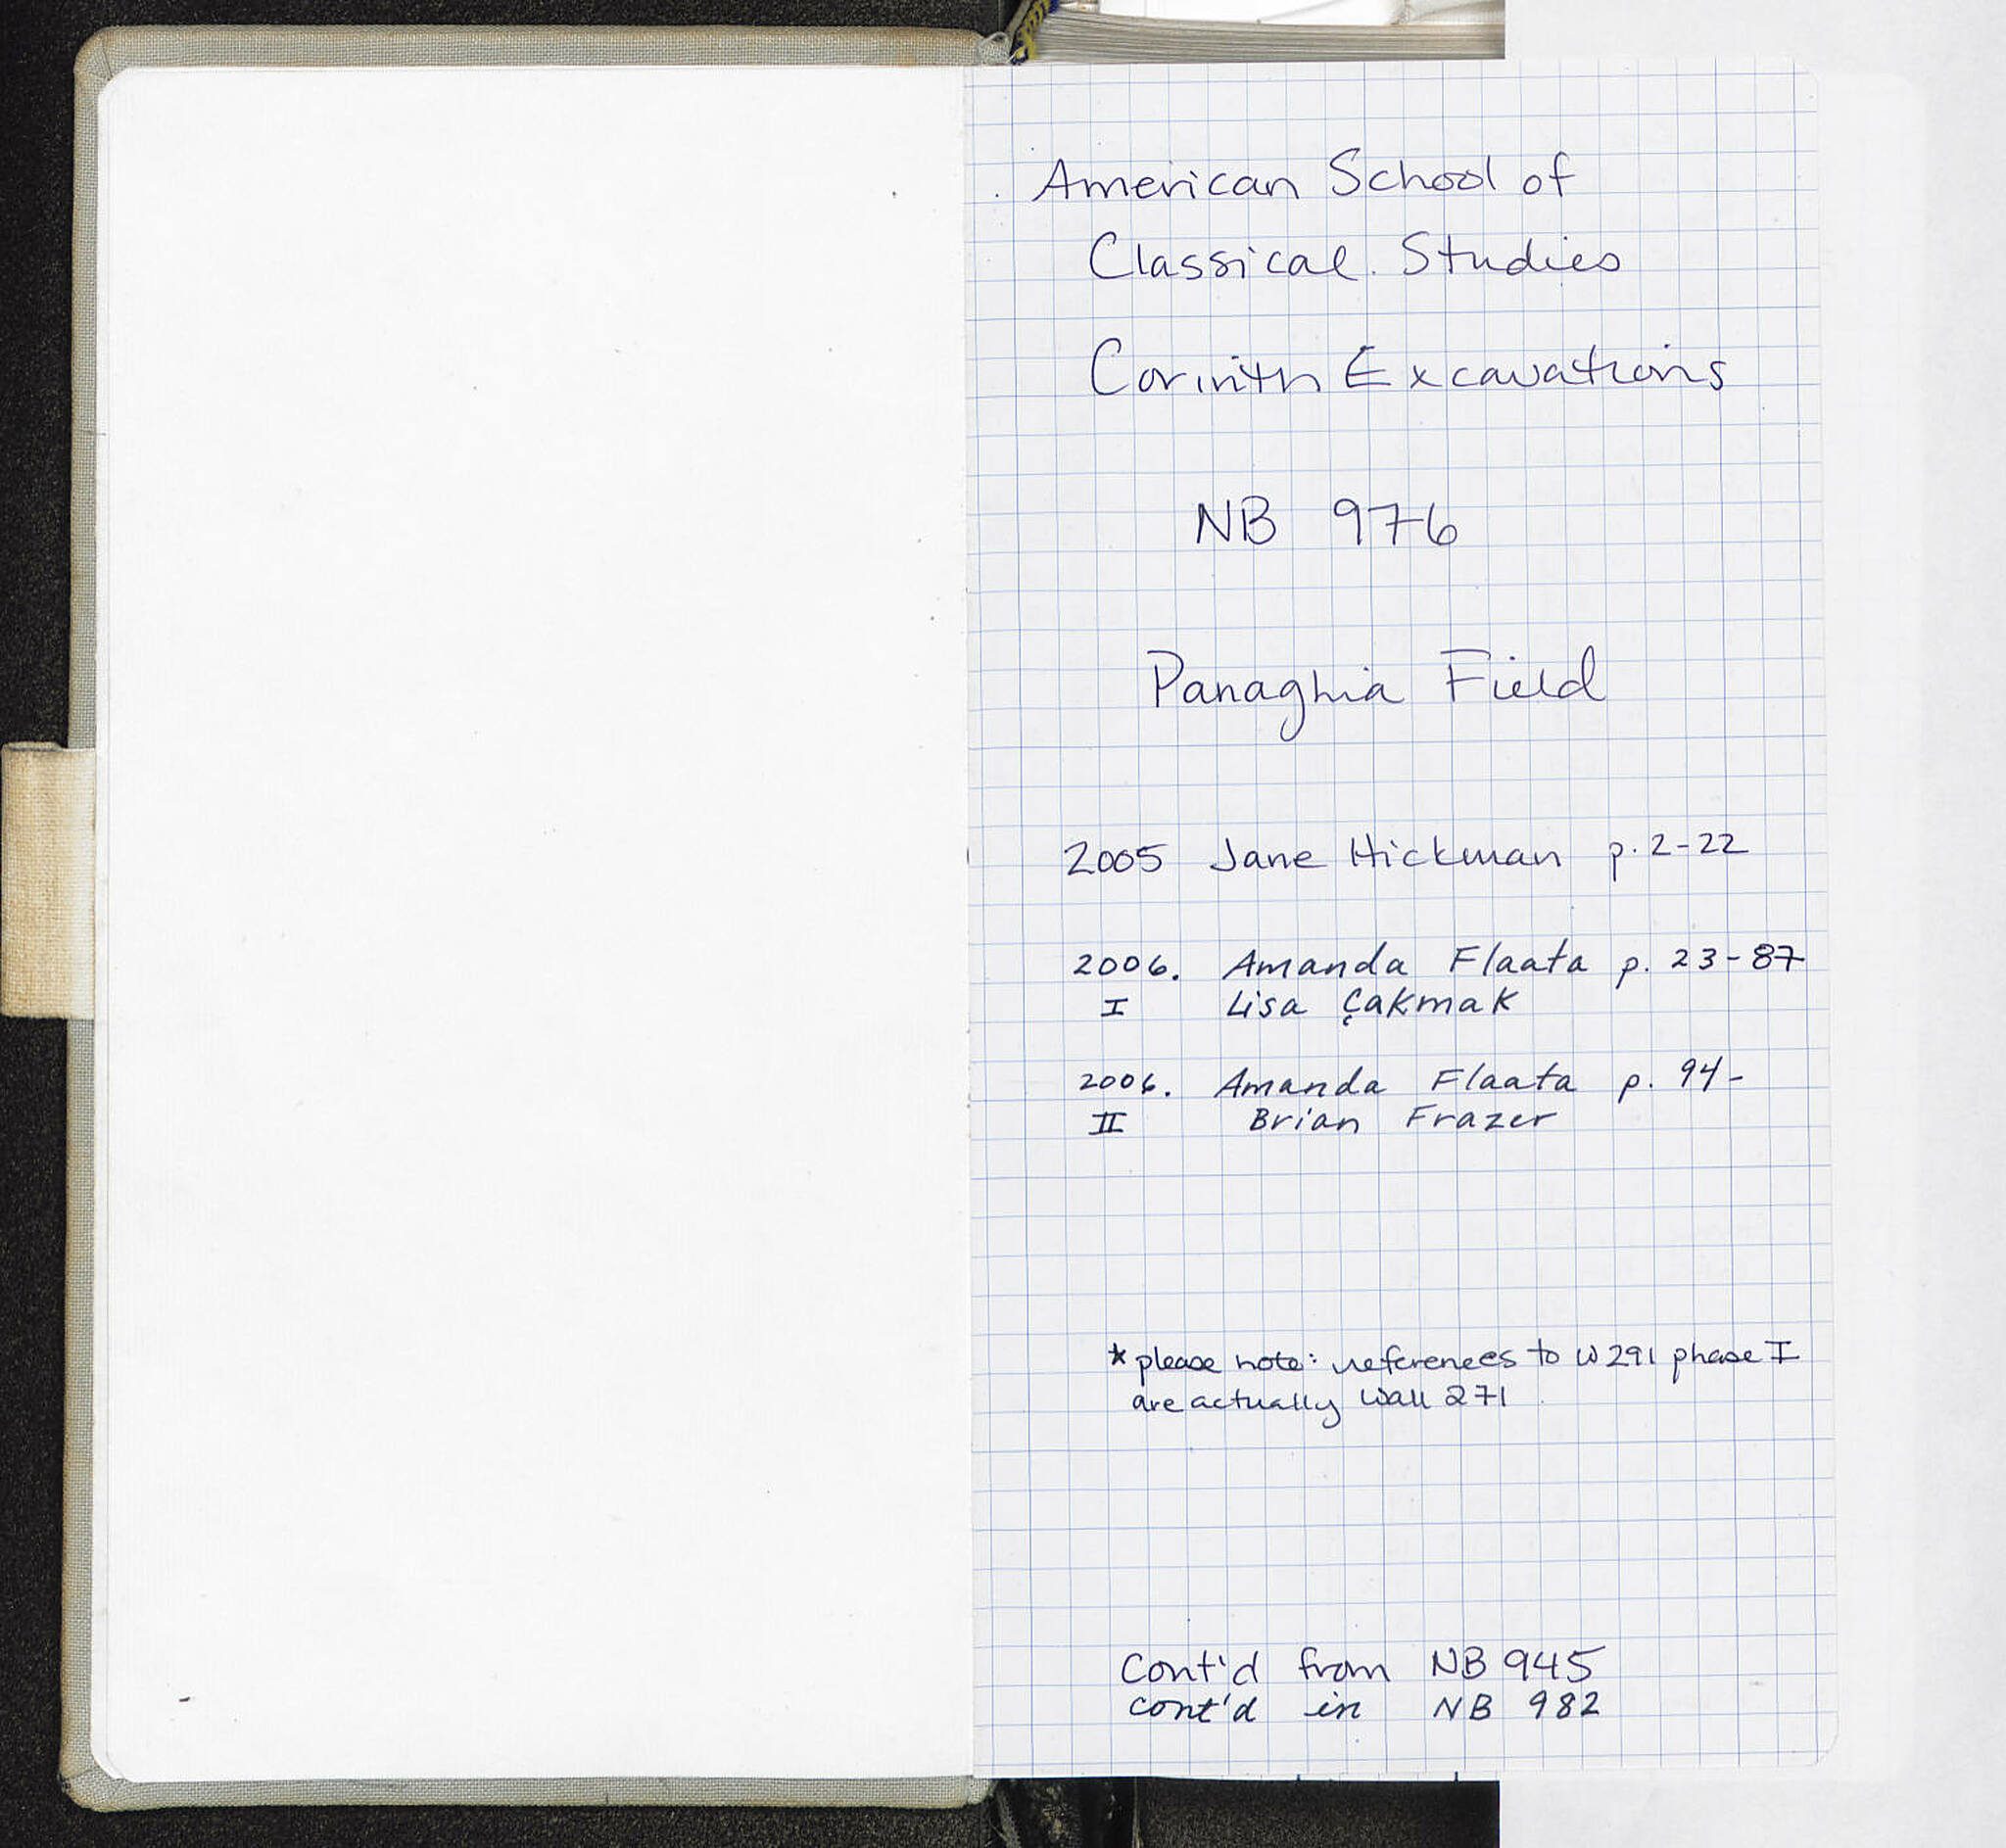 American School of
Classical Studies
Corinth Excavations
NB 976
Panaghia Field
2005 Jane Hickman p. 2-22
2006. Amanda Flaata p. 23-87
I Lisa Çakmak
2006. Amanda Flaata p. 94-
II Brian Frazer
* please note: references to W291 phase I
are actually Wall 271
Cont'd from NB 945
cont'd in NB 982